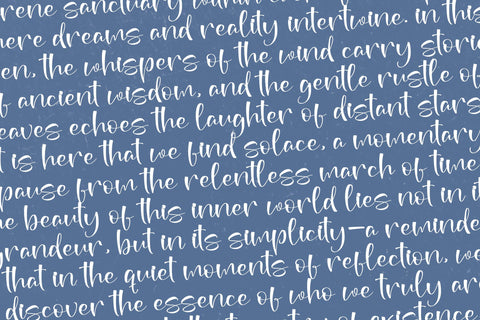 rene sanctuary within
here dreams and reality intertwine. in this
en, the whispers of the wind carry stori
f ancient wisdom, and the gentle rustle of
eaves echoes the laughter of distant stars
t is here that we find solace, a momentary
pause from the relentless march of time
he beauty of this inner world lies not in it
grandeur, but in its simplicity—a reminde
that in the quiet moments of reflection, we
discover the essence of who we truly are
of existence